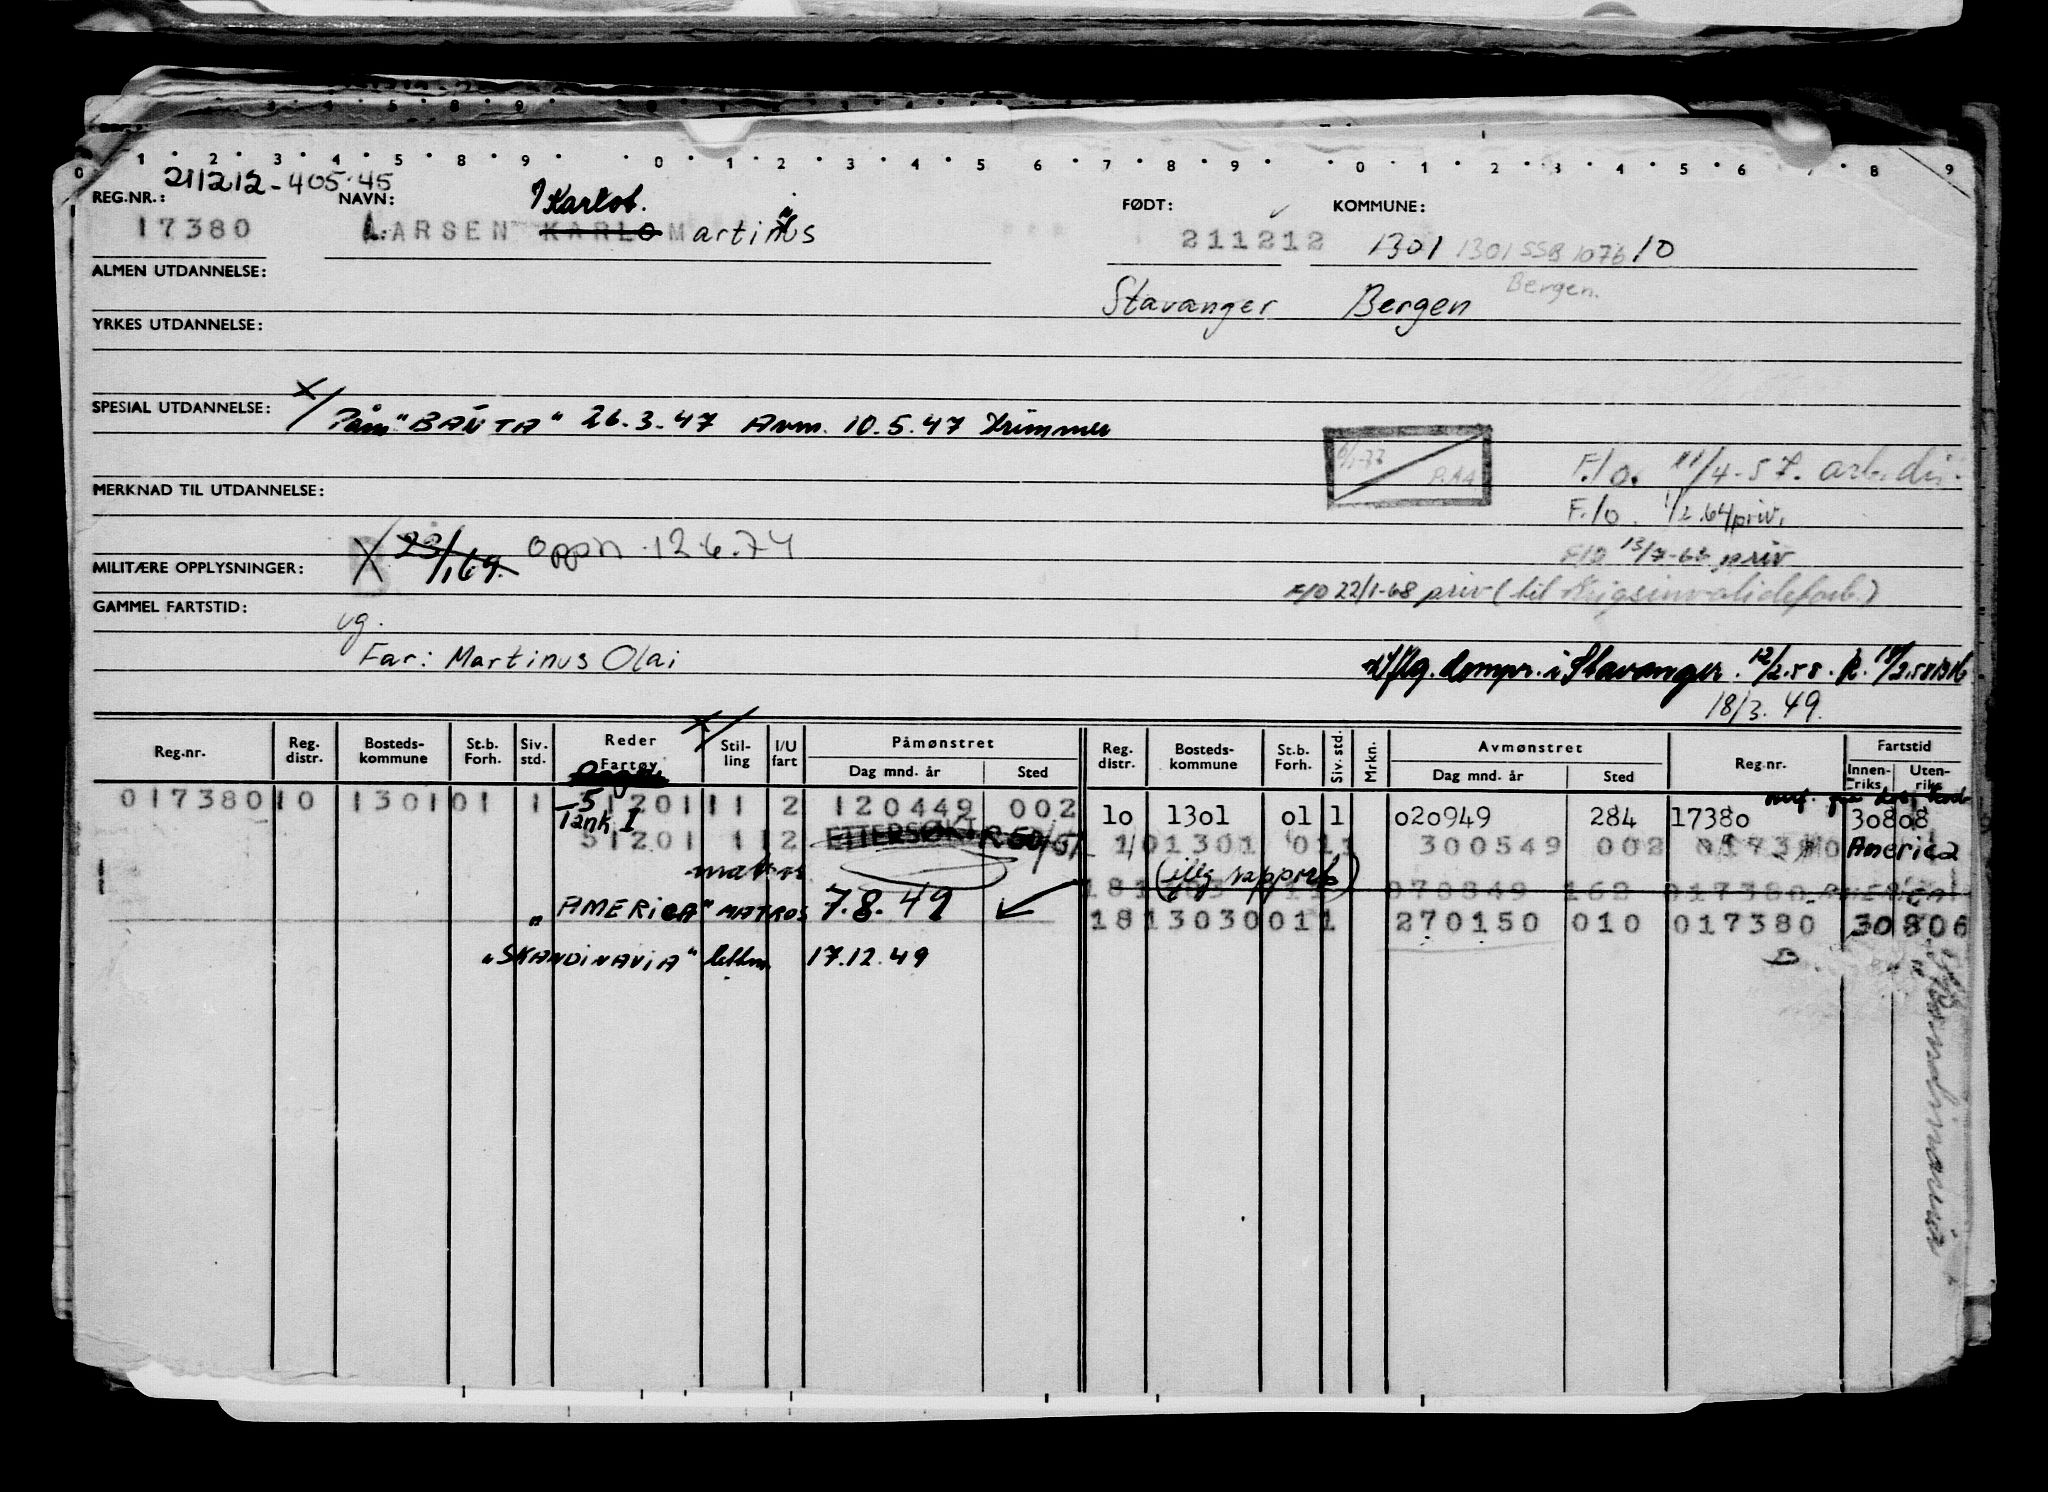 0 1 2 3 4 5 8 9 0 1 2 3 4 5 6 7 8 9 0 1 2 3 4 5 6 7 8 9
211212-405.45
REG.NR.: NAVN: FØDT: KOMMUNE:
Karlot.
17380 LARSEN KARLO Martinus 211212 1301 1301 SSB 1076 10
ALMEN UTDANNELSE:
Stavanger Bergen Bergen.
YRKES UTDANNELSE:
SPESIAL UTDANNELSE: x/ Påm "BANTA" 26.3.47 Avm. 10.5.47 Trimmer
F/o. 11/4-57.
MERKNAD TIL UTDANNELSE:
F/o. 1/2.64 priv.
X 23/1 69. oppn. 12.6.74
F/O 13/7-63 priv
MILITÆRE OPPLYSNINGER:
F/O 22/1-68 priv (til Krigsinvalideforb.)
GAMMEL FARTSTID:
ug.
Far: Martinus Olai
i Stavanger. 12/2.58. R.
18/3. 49.
Reg.nr. Reg. distr. Bosteds- kommune St.b. Forh. Siv. std. Reder Fartøy x/ Stil- ling I/U fart Påmønstret Dag mnd. år Sted Reg. distr. Bosteds- kommune St.b. Forh. Siv. std. Mrkn. Avmønstret Dag mnd. år Sted Reg.nr. Fartstid Innen- riks Uten- riks
017380 10 1301 01 1 51201 11 2 120449 002 10 1301 01 1 020949 284 17380 30808
Tank I
51201 11 2 ETTERSØKT 10 1301 01 1 300549 002 017380 America
matros (illg rapport)
070849 162 017380
"AMERICA" MATROS 7.8.49 18 1303 001 1 270150 010 017380 30806
"SKANDINAVIA" lettm. 17.12.49
Skandinavia